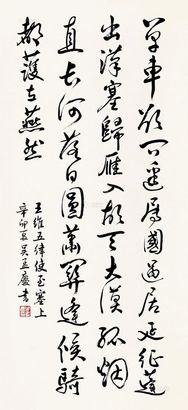 單車欲问邊屬國過居延征蓬
出漢塞歸雁入胡天大漠孤烟
直長河落日圓蕭關逢候騎
都護在燕然
王維五律使至塞上
辛卯夏吳孟慶書